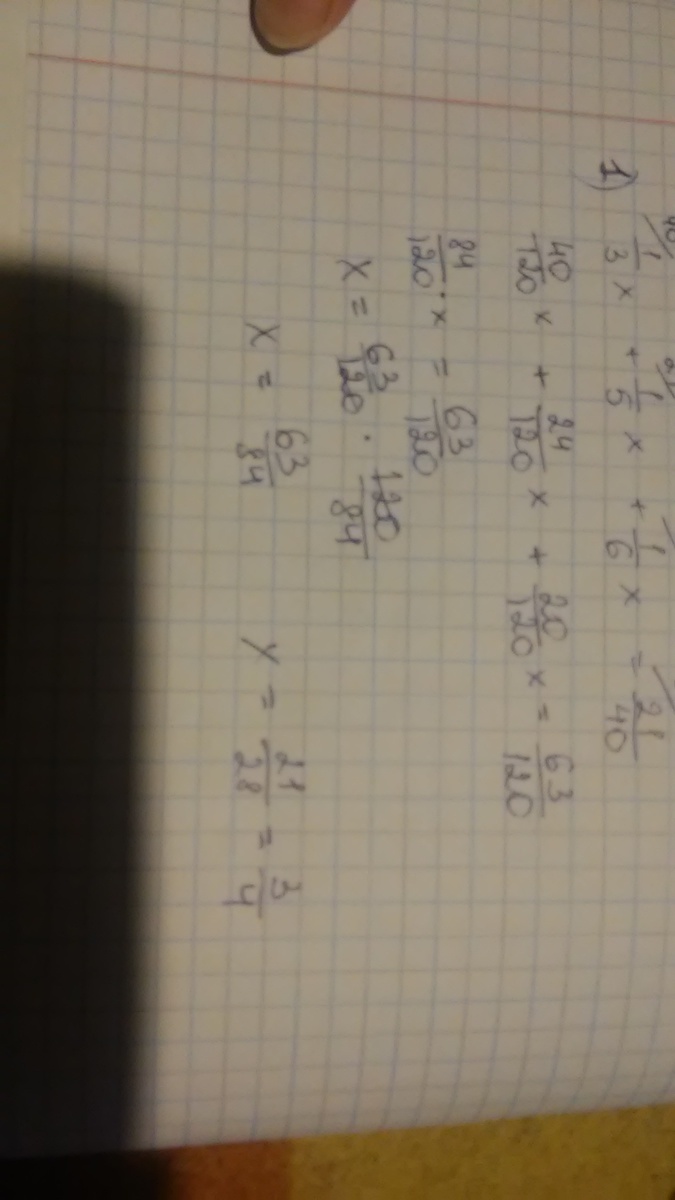 1) 1/3 x + 1/5 x + 1/6 x = 21/40
40/120 x + 24/120 x + 20/120 x = 63/120
84/120 · x = 63/120
x = 63/120 · 120/84
x = 63/84 x = 21/28 = 3/4